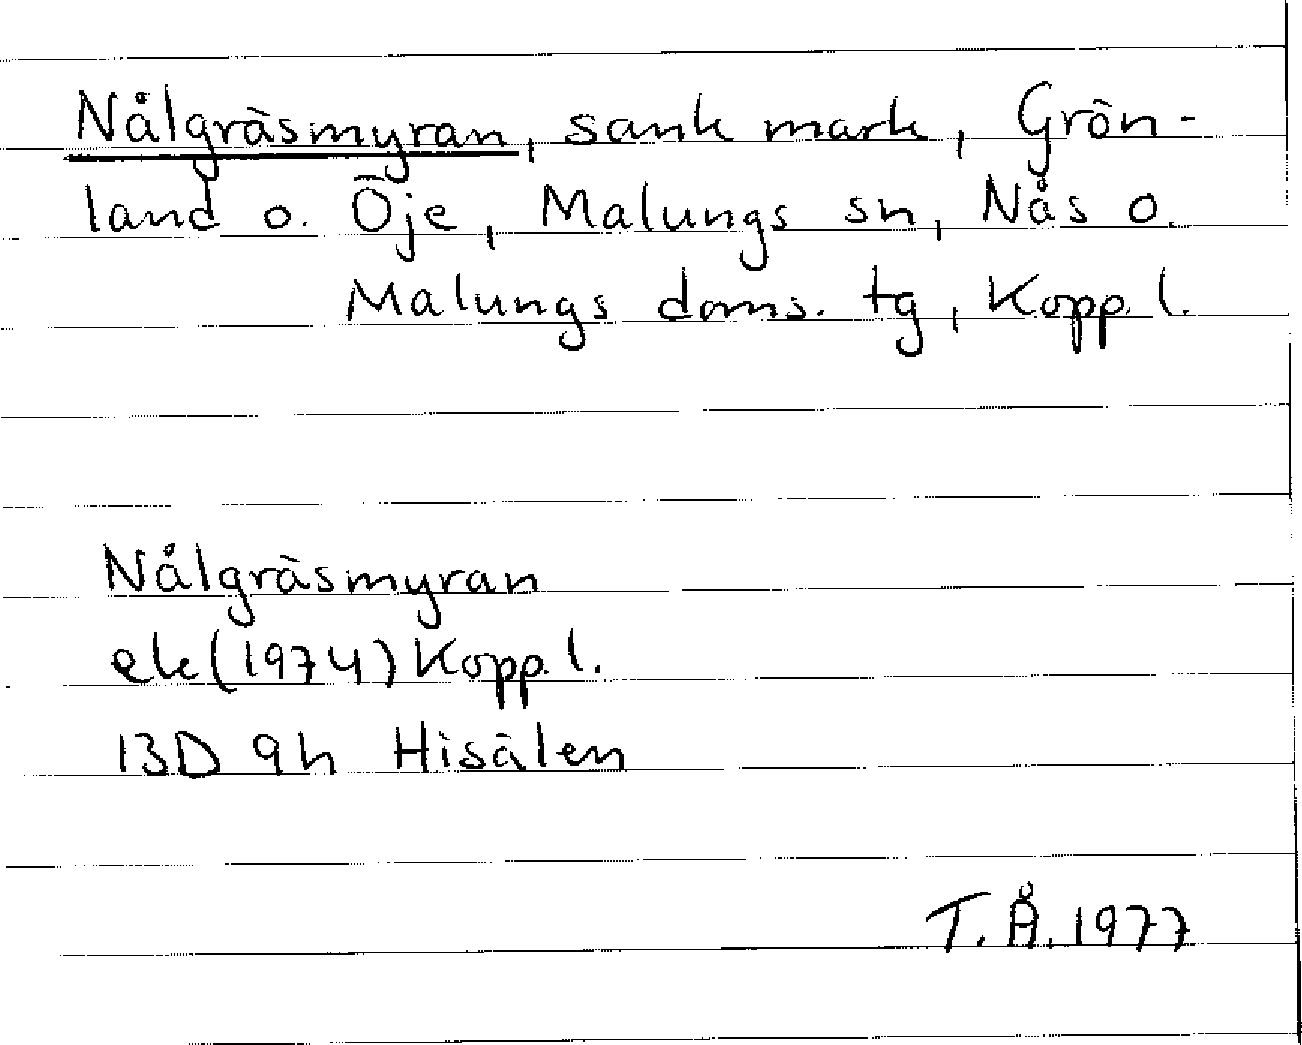 Nålgräsmyran, sank mark, Grön-
land o. Öje, Malungs sn, Nås o.
Malungs doms. tg, Kopp. l.
Nålgräsmyran
ek (1974) Kopp. l.
13D 9h Hisälen
T. Å. 1977